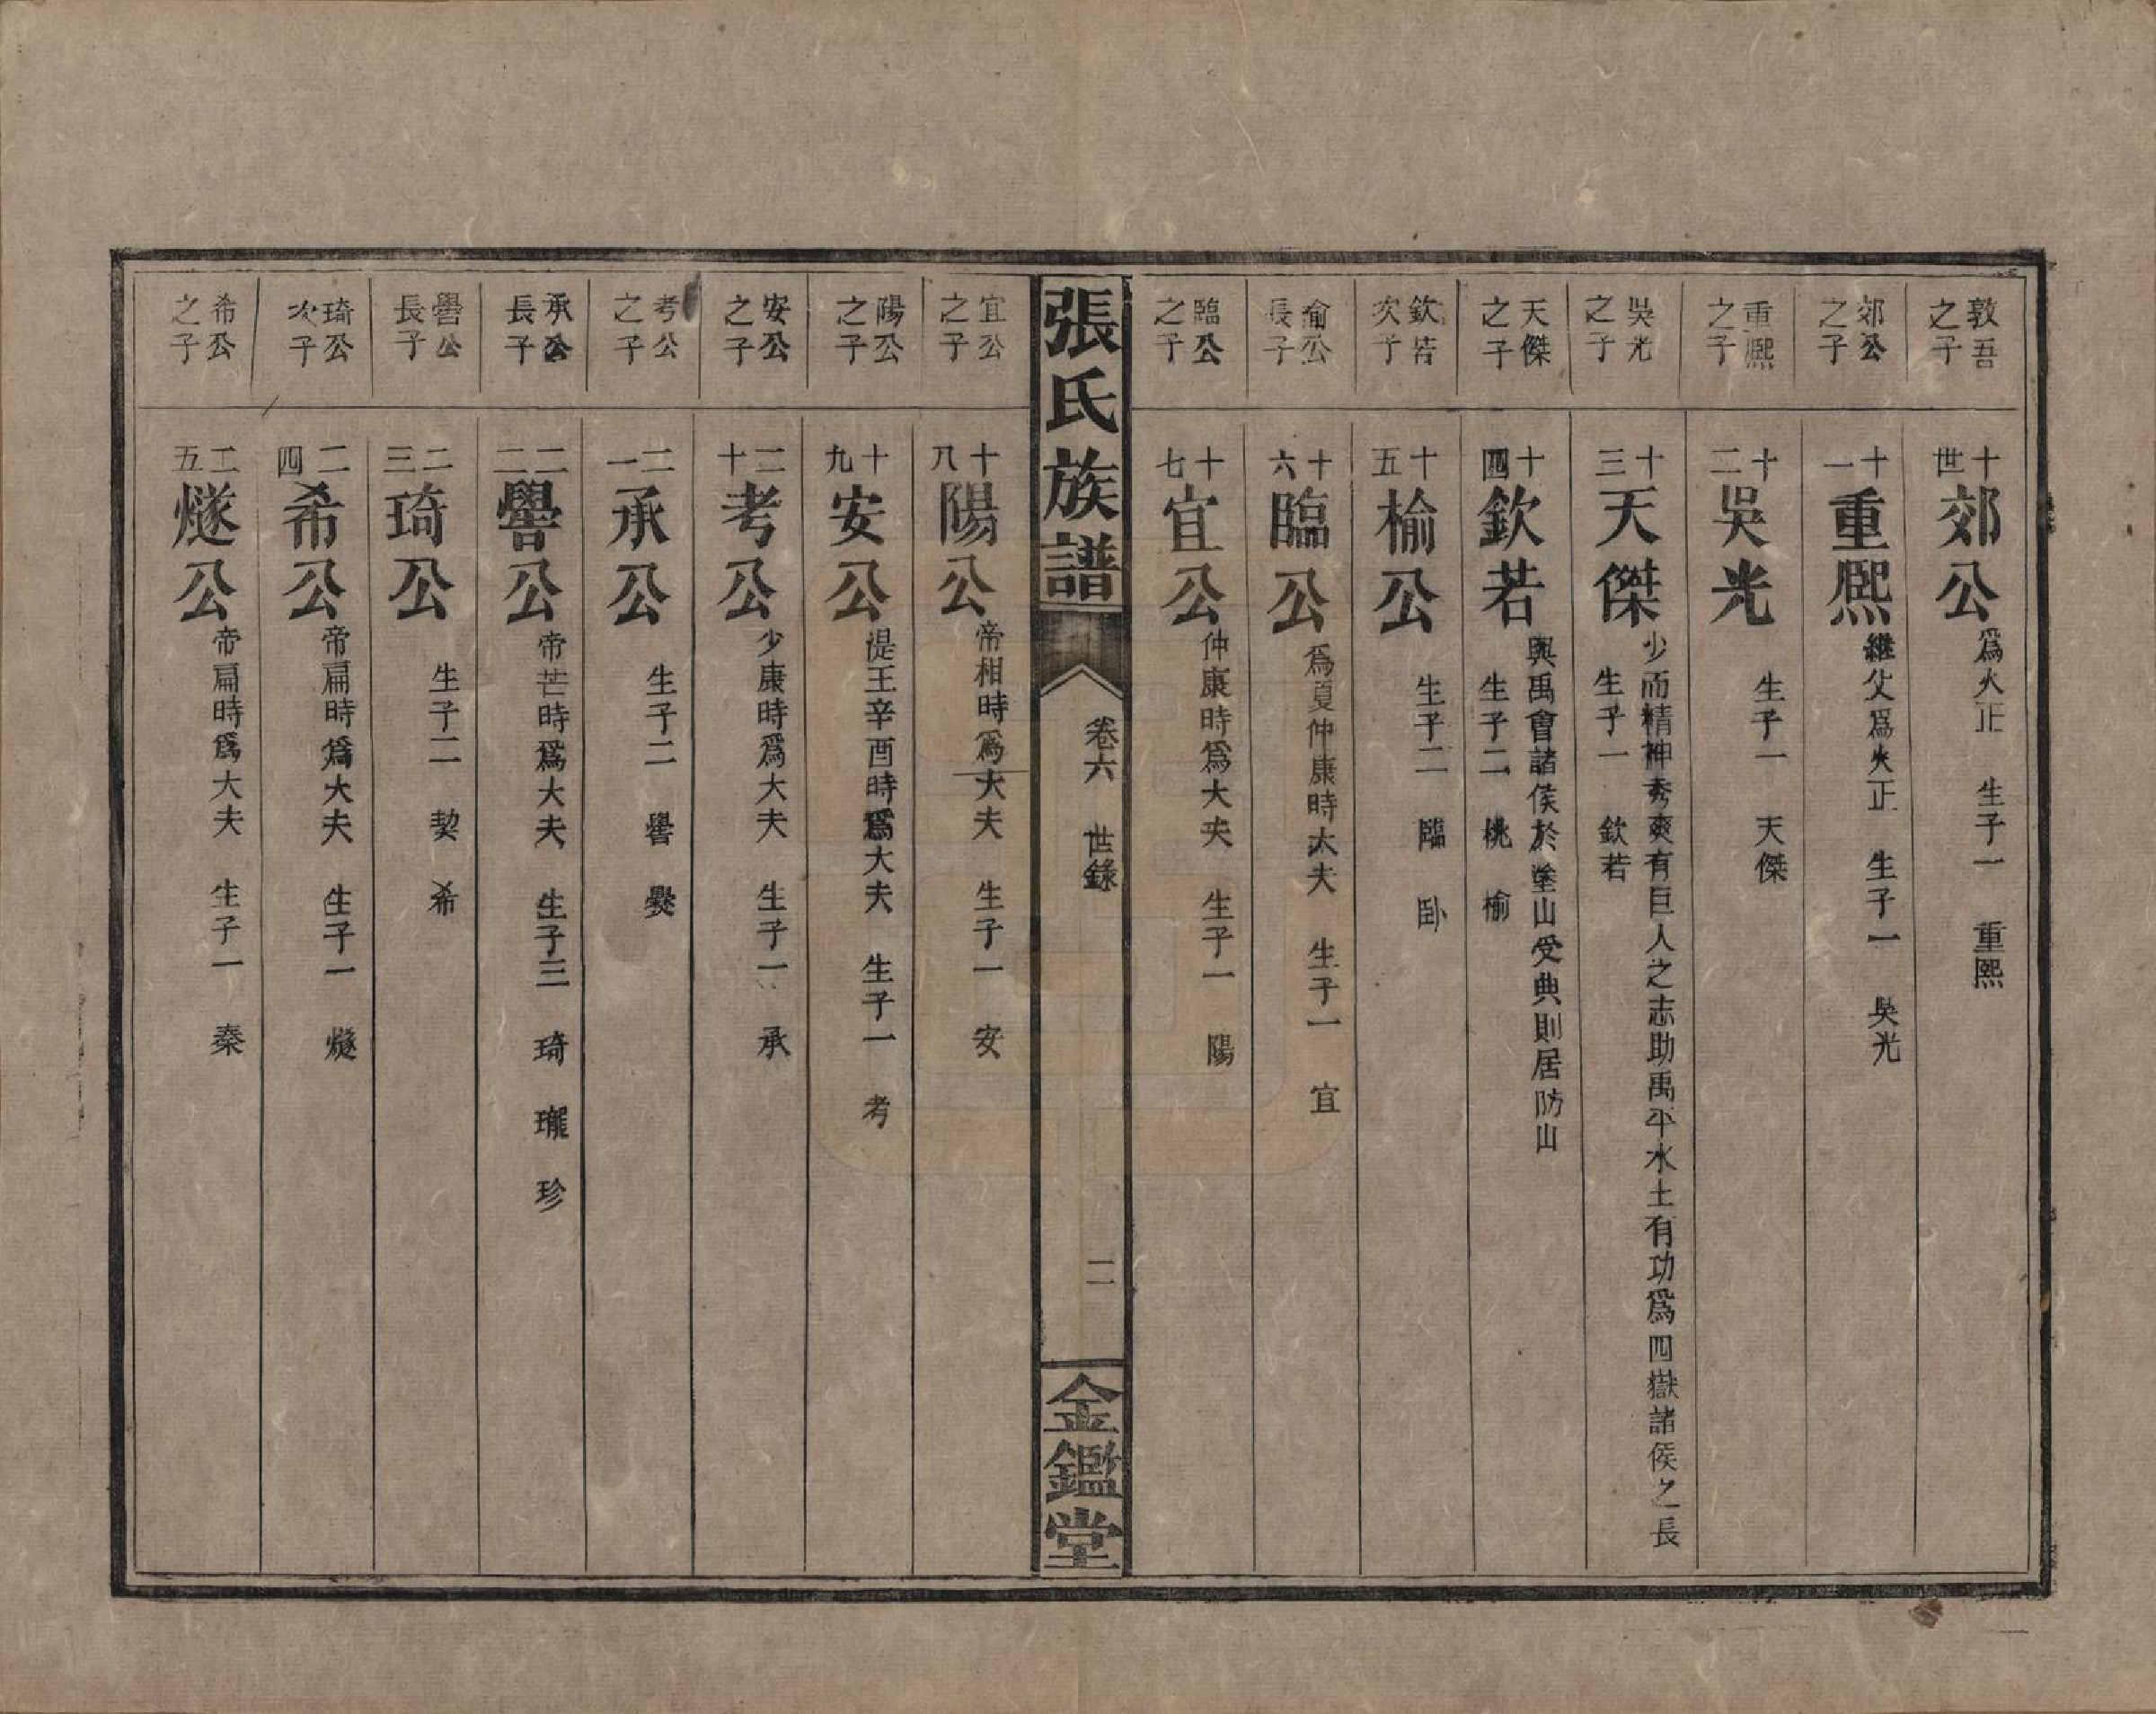 敦吾之子
十世 郊公 爲火正 生子一 重熙
郊公之子
十一 重熙 繼父爲火正 生子一 吳光
重熙之子
十二 吳光 生子一 天傑
吳光之子
十三 天傑 少而精神秀爽有巨人之志助禹平水土有功爲四嶽諸侯之長
生子一 欽若
天傑之子
十四 欽若 興禹會諸侯於塗山受典則居防山
生子二 桃 榆
欽若次子
十五 榆公 生子二 臨 卧
榆公長子
十六 臨公 爲夏仲康時大夫 生子一 宜
臨公之子
十七 宜公 仲康時爲大夫 生子一 陽
張氏族譜 卷六 世錄 二 金鑑堂
宜公之子
十八 陽公 帝相時爲大夫 生子一 安
陽公之子
十九 安公 湜王辛酉時爲大夫 生子一 考
安公之子
二十 考公 少康時爲大夫 生子一 承
考公之子
二一 承公 生子二 譽 㸑
承公長子
二二 譽公 帝芒時爲大夫 生子三 琦 瓏 珍
譽公長子
二三 琦公 生子二 契 希
琦公次子
二四 希公 帝扁時爲大夫 生子一 燧
希公之子
二五 燧公 帝扁時爲大夫 生子一 秦